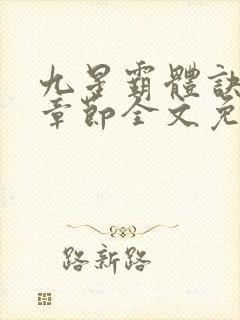 九星霸體訣
章節全文免
路新路